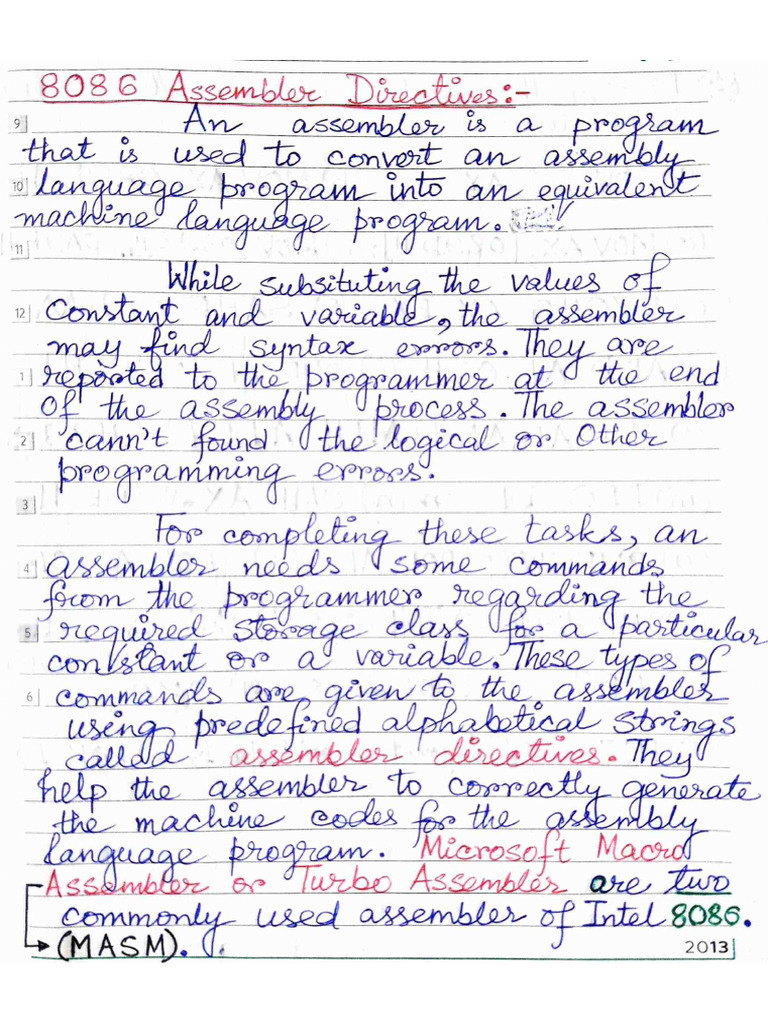 8086 Assembler Directives:-
9 An assembler is a program
that is used to convert an assembly
10 language program into an equivalent
machine language program.
11
While subsituting the values of
12 Constant and variable, the assembler
may find syntax errors. They are
1 reported to the programmer at the end
of the assembly process. The assembler
2 cann't found the logical or Other
programming errors.
3
For completing these tasks, an
4 assembler needs some commands
from the programmer regarding the
5 required storage class for a particular
constant or a variable. These types of
6 commands are given to the assembler
using predefined alphabetical strings
called assembler directives. They
help the assembler to correctly generate
the machine codes for the assembly
language program. Microsoft Macro
Assembler or Turbo Assembler are two
commonly used assembler of Intel 8086.
(MASM).
2013